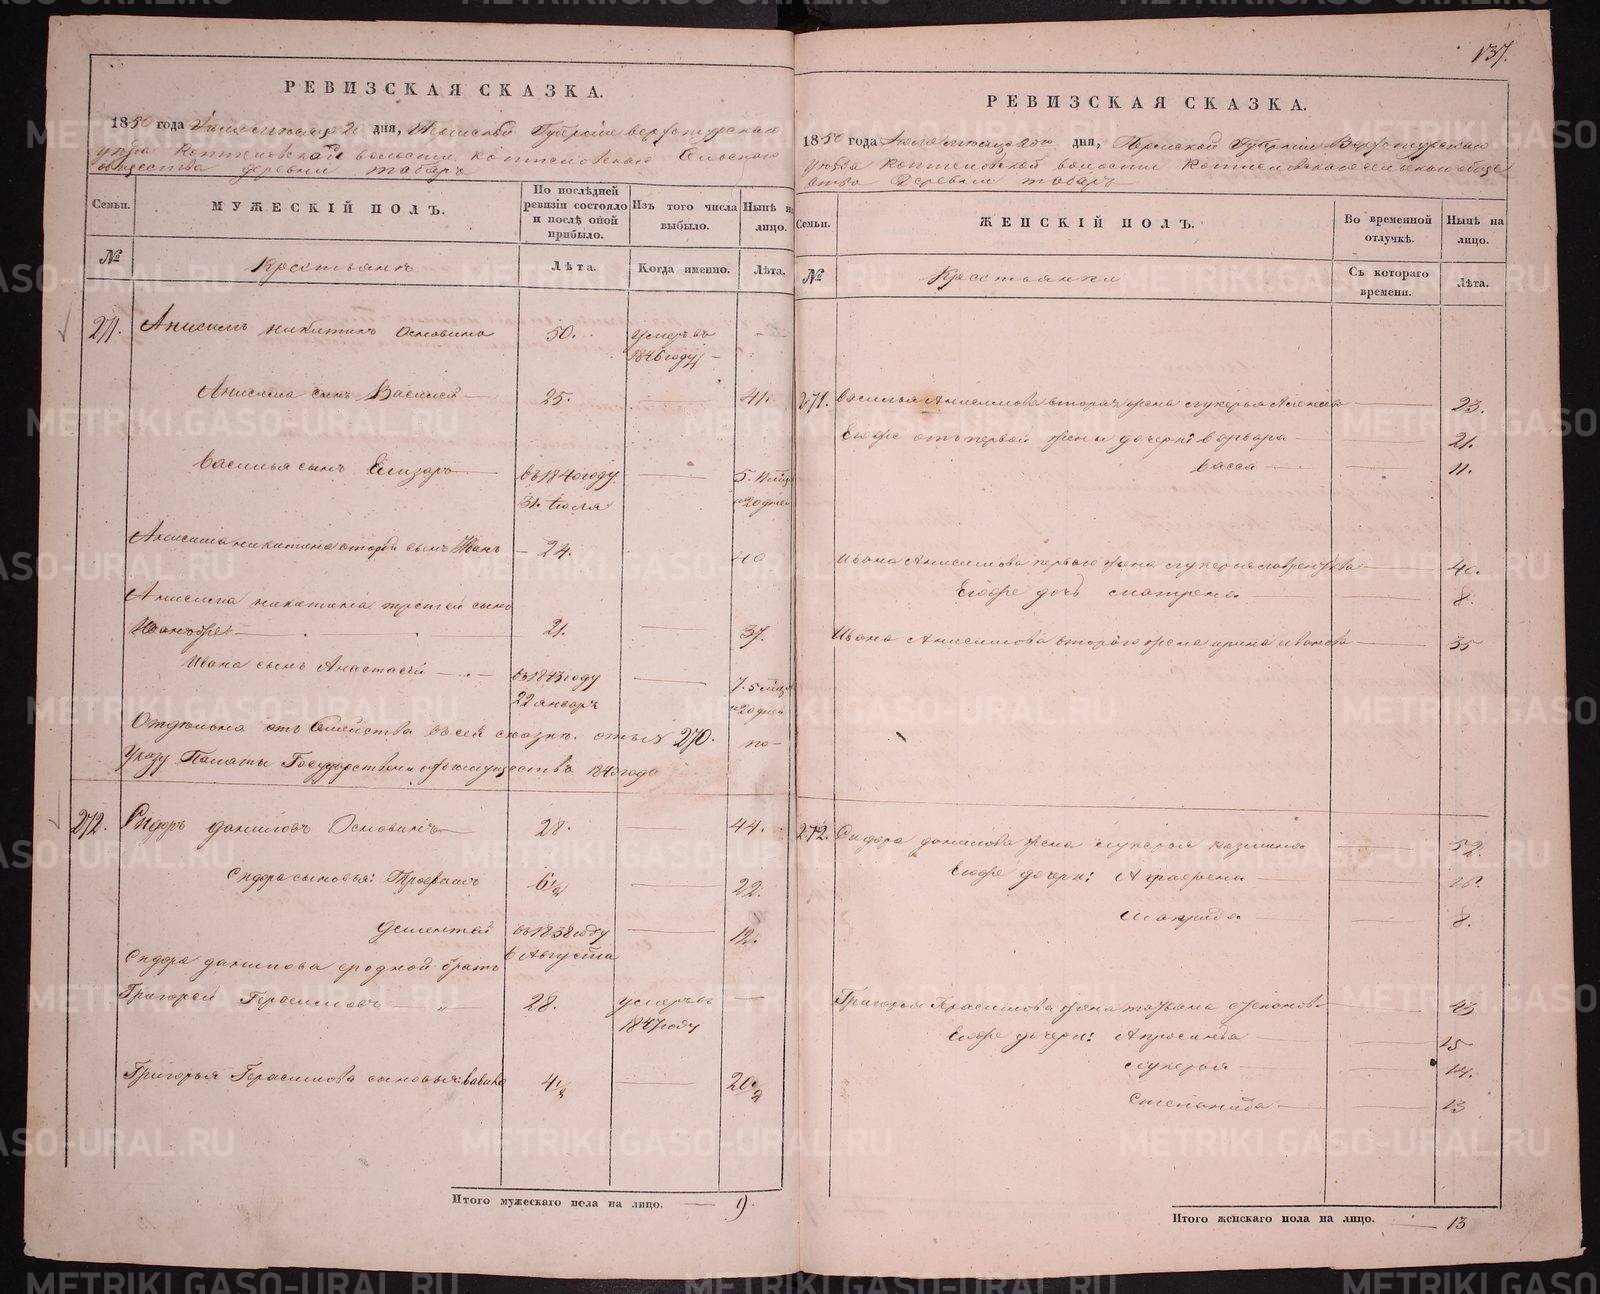 137.
РЕВИЗСКАЯ СКАЗКА.
1850 года дня, Пермской Губернии Верхотурскаго
уезда Коптеловской волости Коптеловскаго Сельскаго
общества деревни Табаръ
Семьи.
МУЖЕСКІЙ ПОЛЪ.
По послѣдней ревизіи состояло и послѣ оной прибыло.
Изъ того числа выбыло.
Нынѣ на лицо.
№
Крестьянъ
Лѣта.
Когда именно.
Лѣта.
271. Анисимъ Никитинъ Основина 50. умеръ въ —
1846 году —
Анисима сынъ Василей 25. — 41.
Василья сынъ Елизаръ въ 1840 году — 5.
31. Июля
Анисима Никитина второй сынъ Иванъ 24. 40
Анисима Никитина третей сынъ
Иванъ же 21. — 37.
Ивана сынъ Анастасей въ 1843 году — 7.
22 январъ
Отдѣльна отъ Семейства въ сей сказкѣ 270. по
Указу Палаты Государственныхъ имуществъ 184 года
272. Сидоръ Даниловъ Основинъ 28. — 44.
Сидора сыновья: Трофимъ 6½ — 22.
Дементей въ 1838 году — 12.
6 Августа
Сидора Данилова сродной братъ
Григорей Герасимовъ 28. умеръ въ —
1847 году
Григорья Герасимова сыновья: Вавило 4½ — 20½
Итого мужескаго пола на лицо. — 9
РЕВИЗСКАЯ СКАЗКА.
1850 года дня, Пермской Губернии Верхотурскаго
уезда Коптеловской волости Коптеловскаго сельскаго обще
ства Деревни Табаръ
Семьи.
ЖЕНСКІЙ ПОЛЪ.
Во временной отлучкѣ.
Нынѣ на лицо.
№
Крестьянки
Съ котораго времени.
Лѣта.
271. Василья Анисимова вторая жена Лукерья — 23.
Егоже отъ первой жены дочери Варвара — 21.
Васса — 11.
Ивана Анисимова перваго жена Лукерья — 40.
Егоже дочь Матрена — 8.
Ивана Анисимова втораго жена Ирина Иванова — 35
272. Сидора Данилова жена Лукерья Козмина — 52.
Егоже дочери: Аграфена —
Макрида — 8.
Григорья Герасимова жена Татьяна — 43
Егоже дочери: Апросинья — 15
Лукерья — 14.
Степанида — 13
Итого женскаго пола на лицо. — 13
METRIKI.GASO-URAL.RU